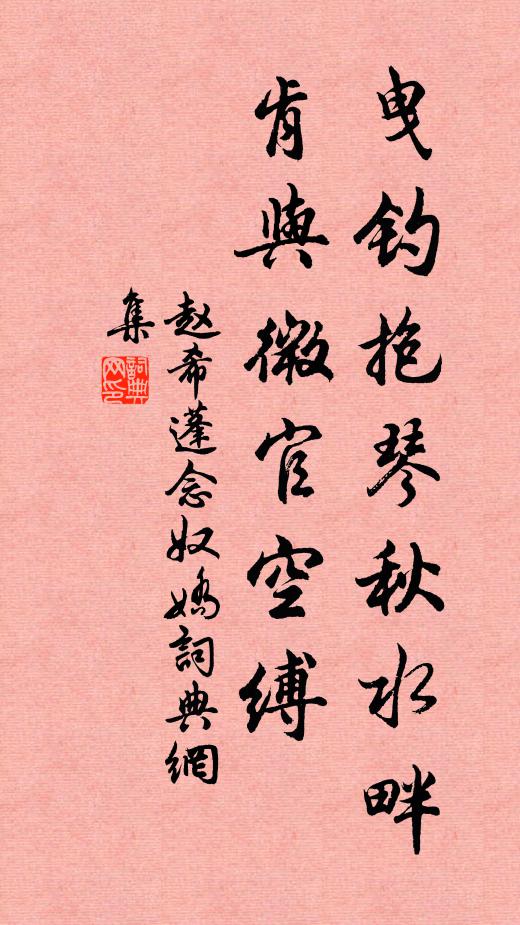 曳钓抱琴秋水畔
肯與微官空縛
赵希蓬念奴嬌詞典網
集
詞典
网印